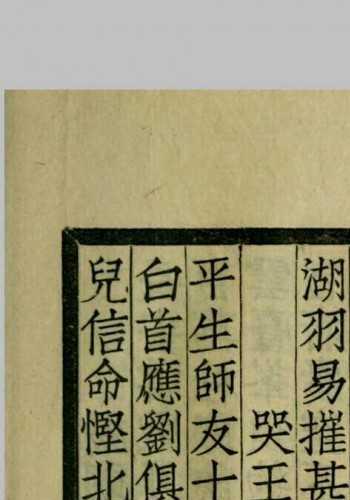 湖羽易摧甚
哭王
平生師友十
白首應劉俱
兒信命慳北